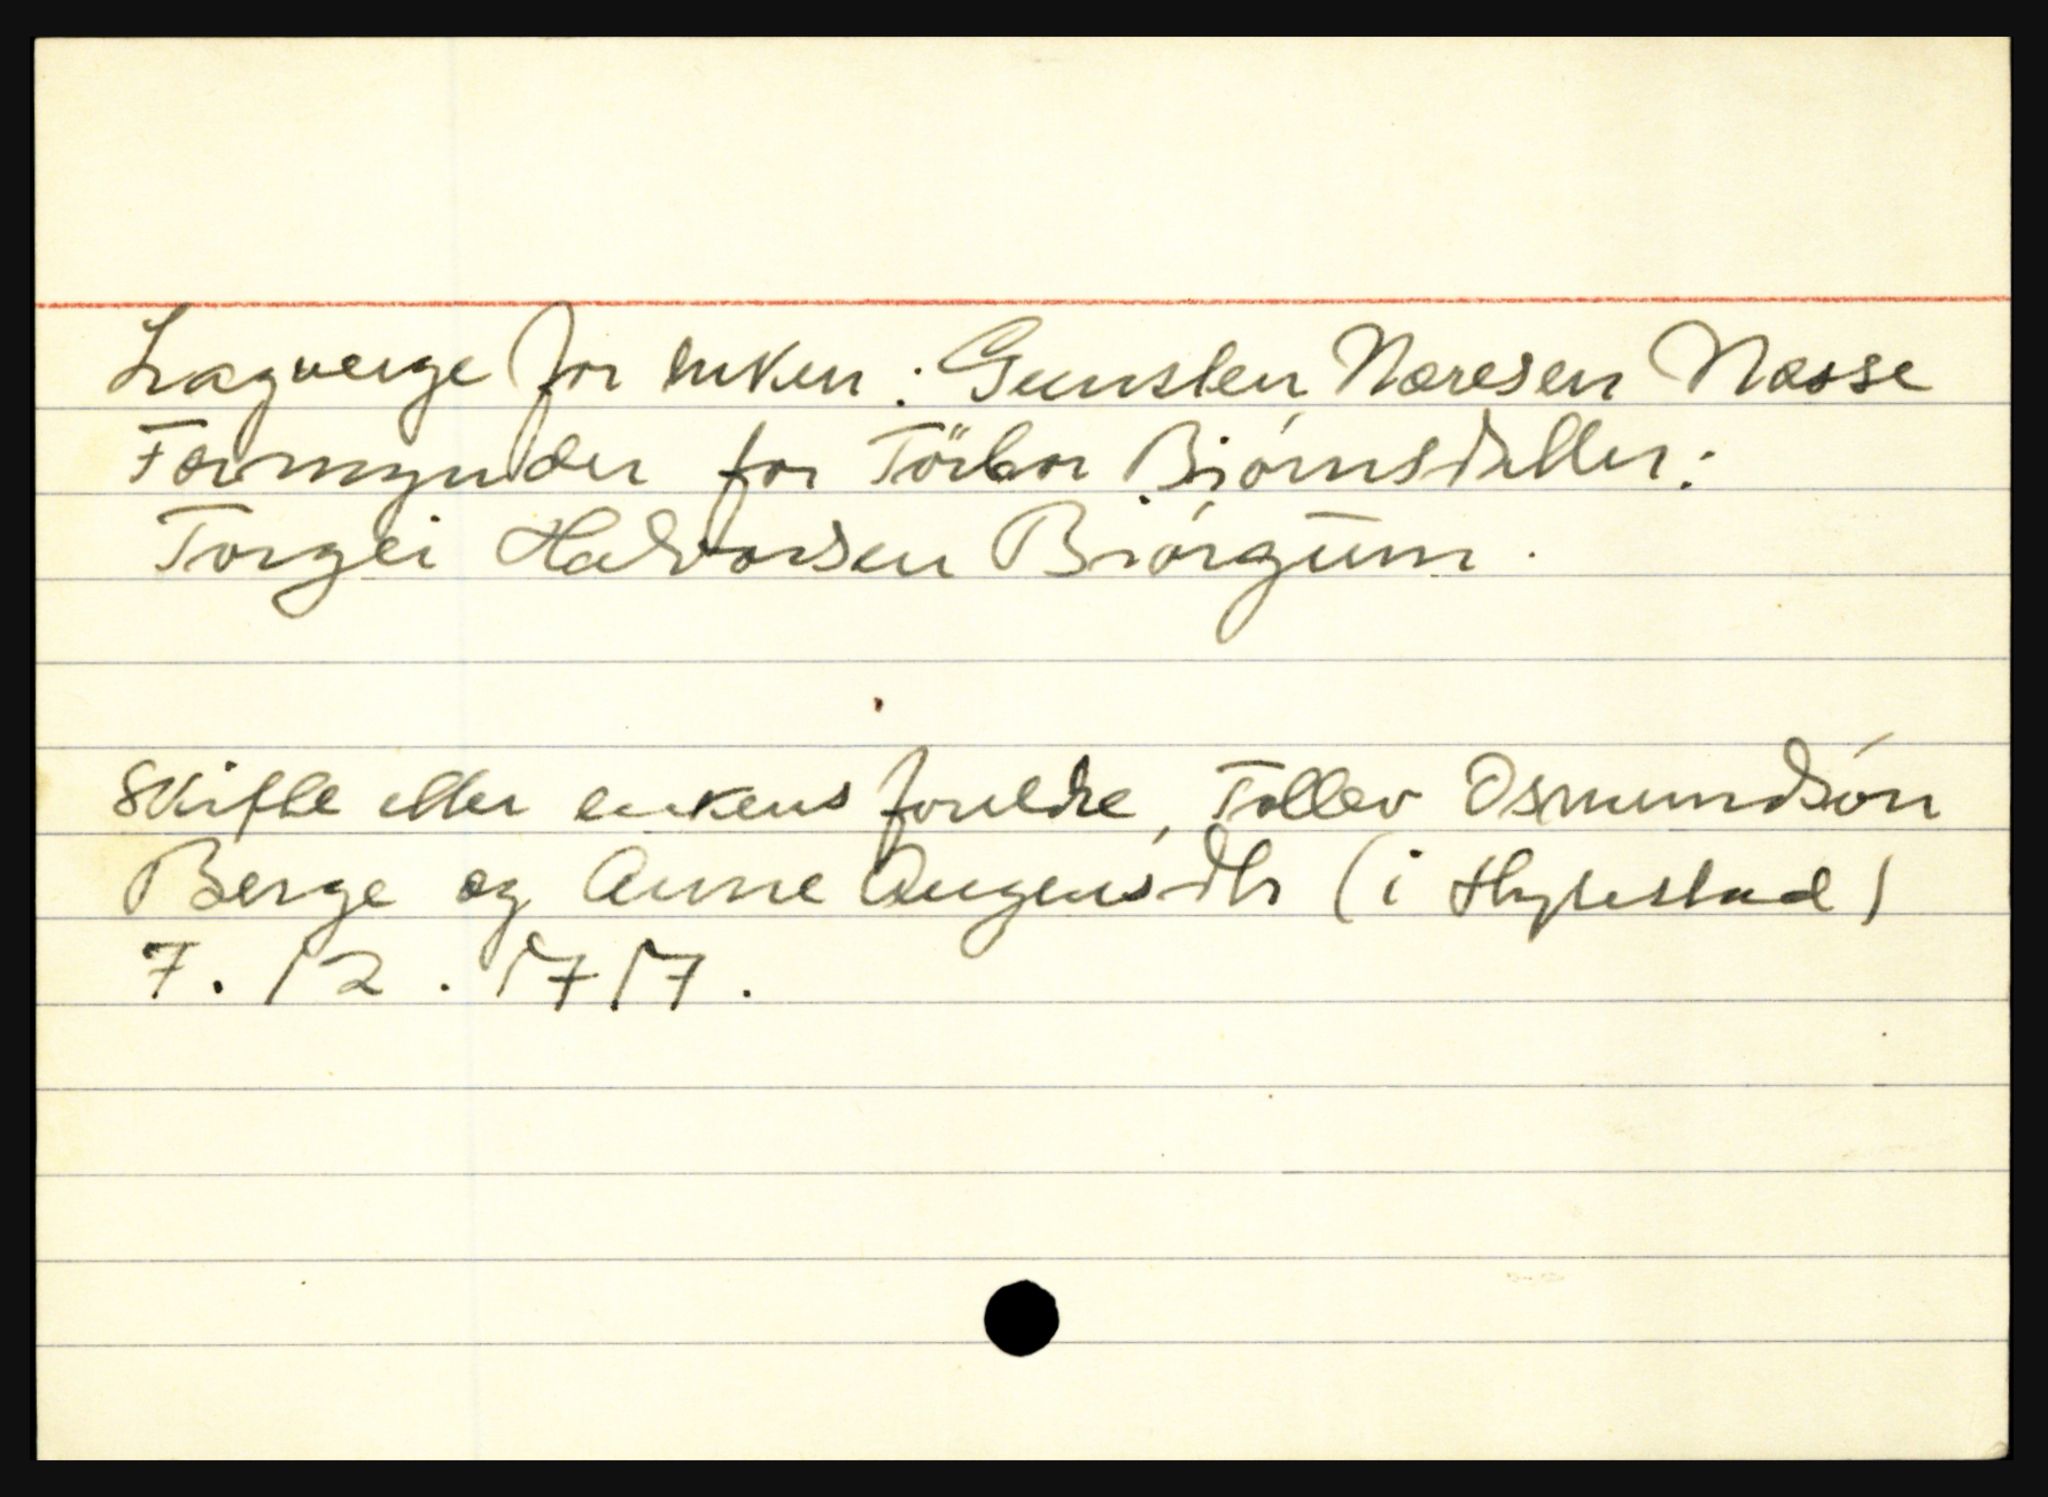 Lagverge for enken: Gunsten Næresen Næsse
Formynder for Törbor Biórnsdatter:
Torgei Halvorsen Biórgum.
Skifte etter enkens foreldre, Tollev Osmundsón
Berge og Anne Augensdtr (i Hylestad)
7. 12. 1717.